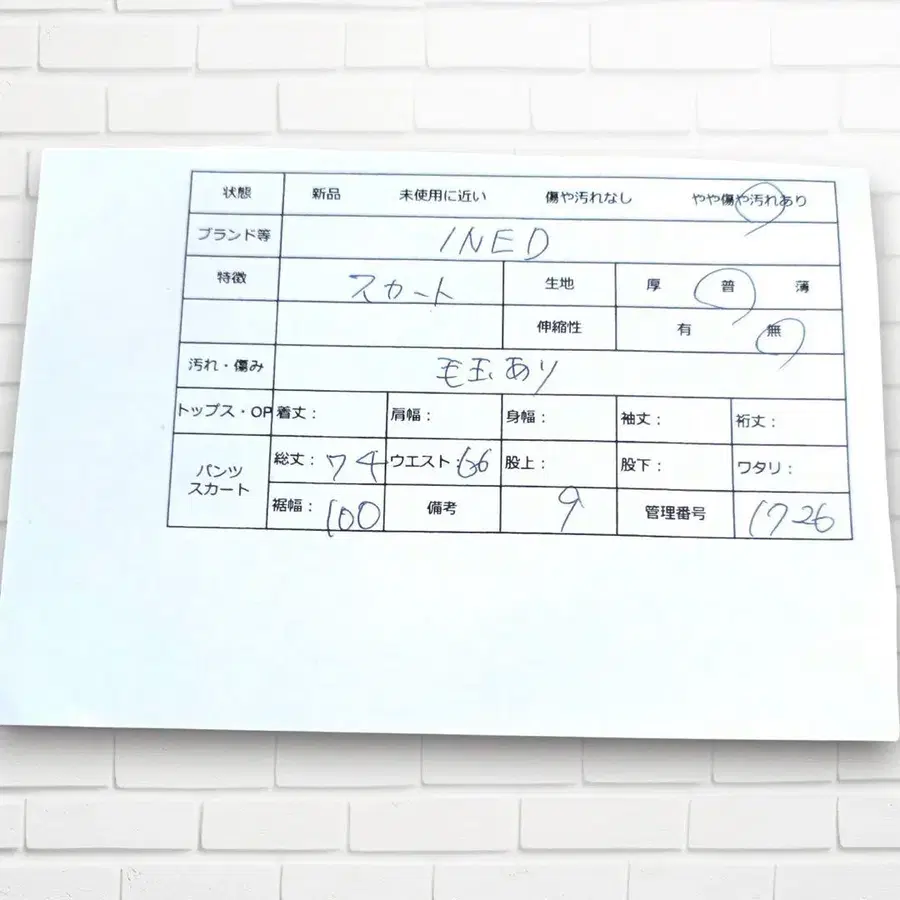 状態 新品 未使用に近い 傷や汚れなし やや傷や汚れあり
ブランド等 INED
特徴 スカート 生地 厚 普 薄
伸縮性 有 無
汚れ・傷み 毛玉あり
トップス・OP 着丈： 肩幅： 身幅： 袖丈： 裄丈：
パンツ スカート 総丈：74 ウエスト：66 股上： 股下： ワタリ：
裾幅：100 備考 9 管理番号 1726